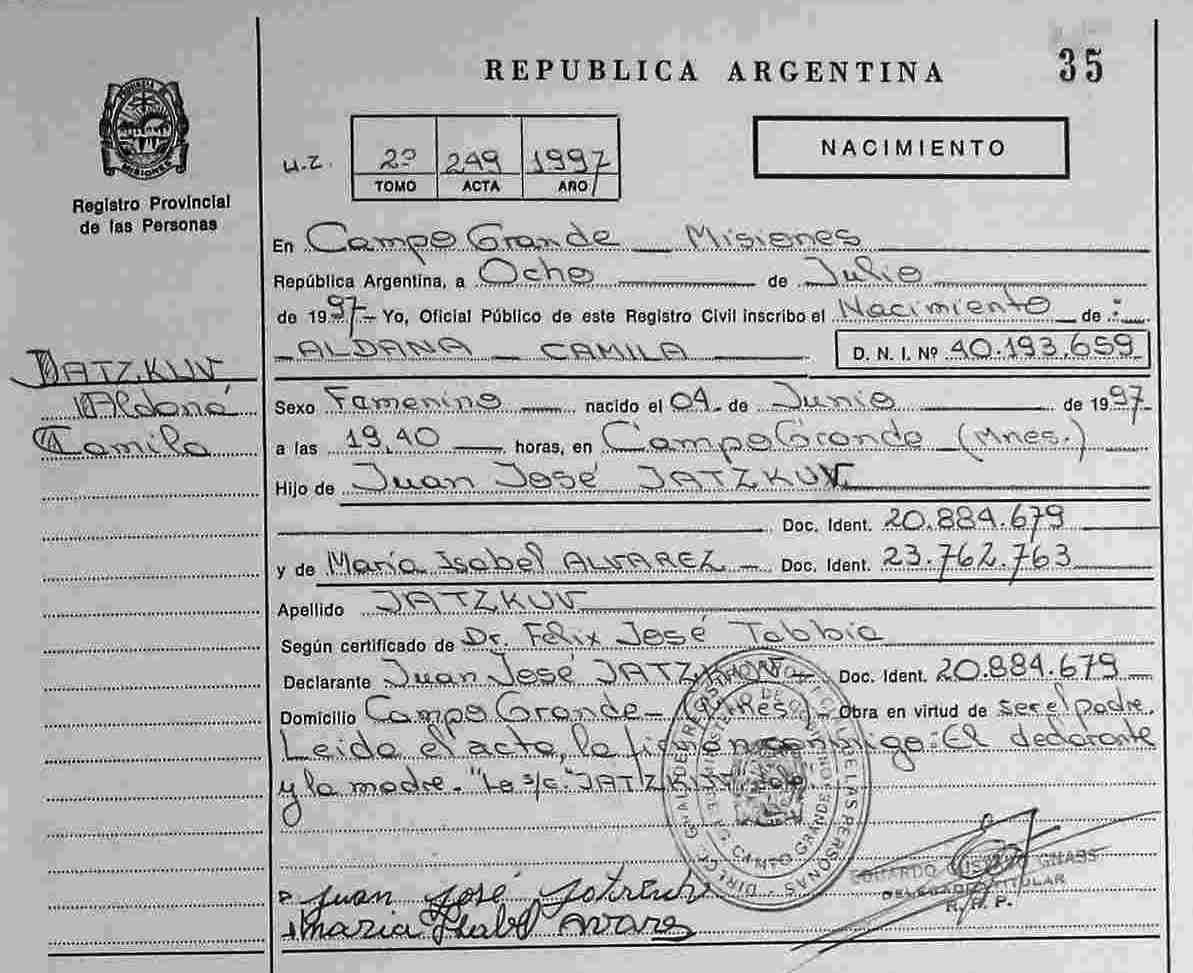 REPUBLICA ARGENTINA
35
PROVINCIA DE
MISIONES
Registro Provincial
de las Personas
u.z. 2º 249 1997
TOMO ACTA AÑO
NACIMIENTO
En Campo Grande Misiones
República Argentina, a Ocho de Julio
de 1997- Yo, Oficial Público de este Registro Civil inscribo el Nacimiento de :
ALDANA CAMILA D. N. I. Nº 40.193.659
JATZKUV
Aldana
Camila
Sexo Famenino nacido el 04 de Junio de 1997
a las 19,40 horas, en Campo Grande (Mnes.)
Hijo de Juan José JATZKUV
Doc. Ident. 20.884.679
y de María Isabel ALVAREZ Doc. Ident. 23.762.763
Apellido JATZKUV
Según certificado de Dr. Felix José Tabbia
Declarante Juan José JATZKUV Doc. Ident. 20.884.679
Domicilio Campo Grande- Obra en virtud de ser el padre.
Leida el acta, la firman conmigo: El declarante
y la madre. JATZKUV
CAMPO GRANDE
DE LAS PERSONAS
EDUARDO GUSTAVO GNASS
DELEGADO TITULAR
R. P. P.
Juan José
Maria Isabel Alvarez